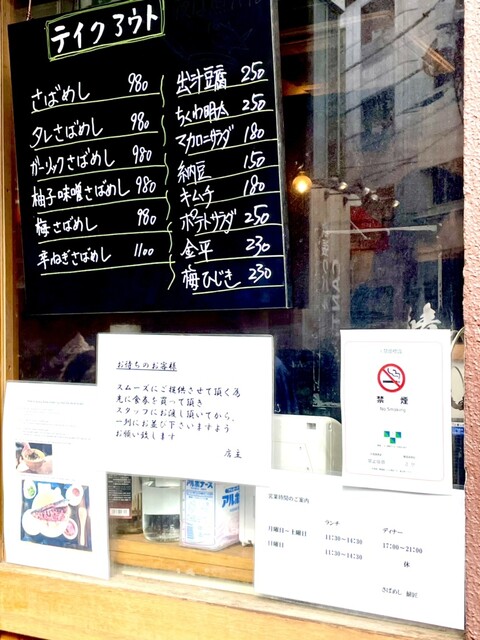 テイクアウト
さばめし 980
タレさばめし 980
ガーリックさばめし 980
柚子味噌さばめし 980
梅さばめし 980
辛ねぎさばめし 1100
出汁豆腐 250
ちくわ明太 250
マカロニサラダ 180
納豆 150
キムチ 180
ポテトサラダ 250
金平 230
梅ひじき 230
お待ちのお客様
スムーズにご提供させて頂く為
先に食券を買って頂き
スタッフにお渡し頂いてから、
一列にお並び下さいますよう
お願い致します
店主
禁煙
No Smoking
営業時間のご案内
ランチ ディナー
月曜日〜土曜日 11:30〜14:30 17:00〜21:00
日曜日 11:30〜14:30 休
さばめし